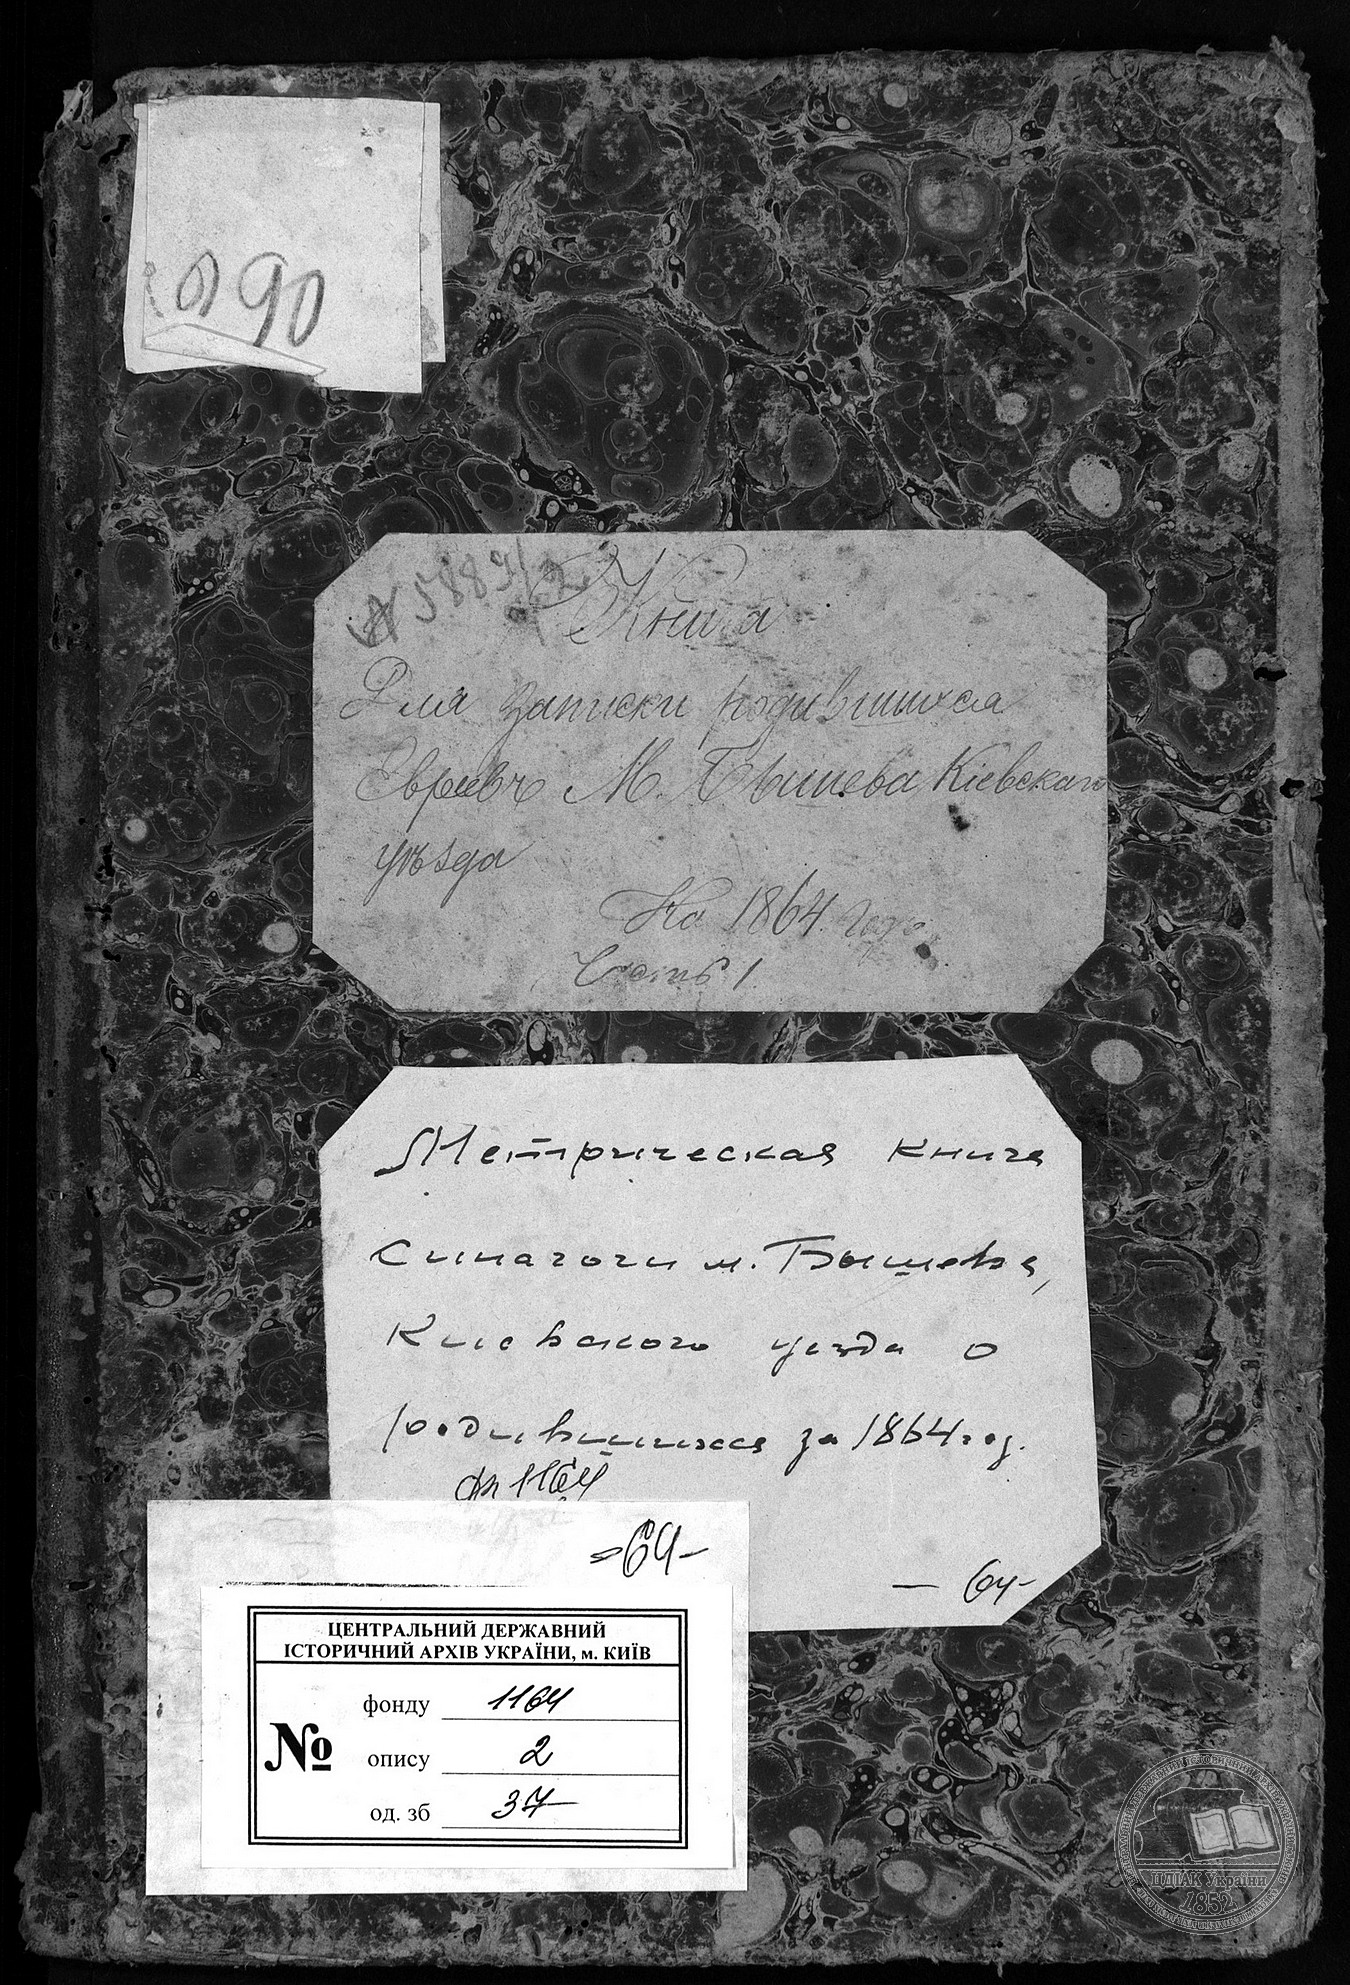 90
№ 5889/2
Книга
Для записки родившихся
Евреевъ М. Бышева Кіевскаго
уѣзда
На 1864 годъ
Часть 1
Метрическая книга
синагоги м. Бышева,
Киевского уезда о
родившихся за 1864 год.
ф. 1164
-64-
- 64-
ЦЕНТРАЛЬНИЙ ДЕРЖАВНИЙ
ІСТОРИЧНИЙ АРХІВ УКРАЇНИ, м. КИЇВ
№
фонду 1164
опису 2
од. зб 37
ЦДІАК України
1852